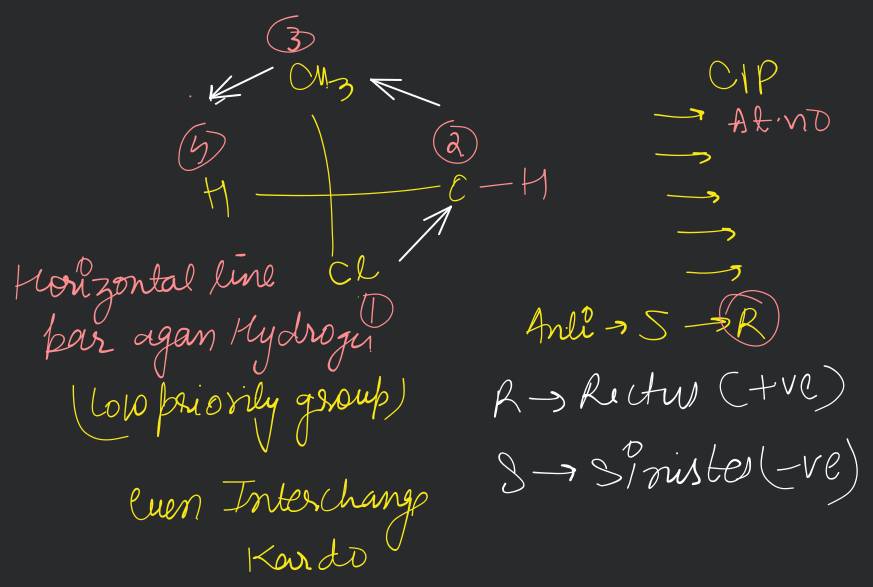 ③
CH3
CIP
At.no
④
②
H
C - H
Cl
①
Horizontal line
par agar Hydrogen
(low priority group)
Anti → S → R
R → Rectus (+ve)
S → Sinister (-ve)
even Interchange
Kardo